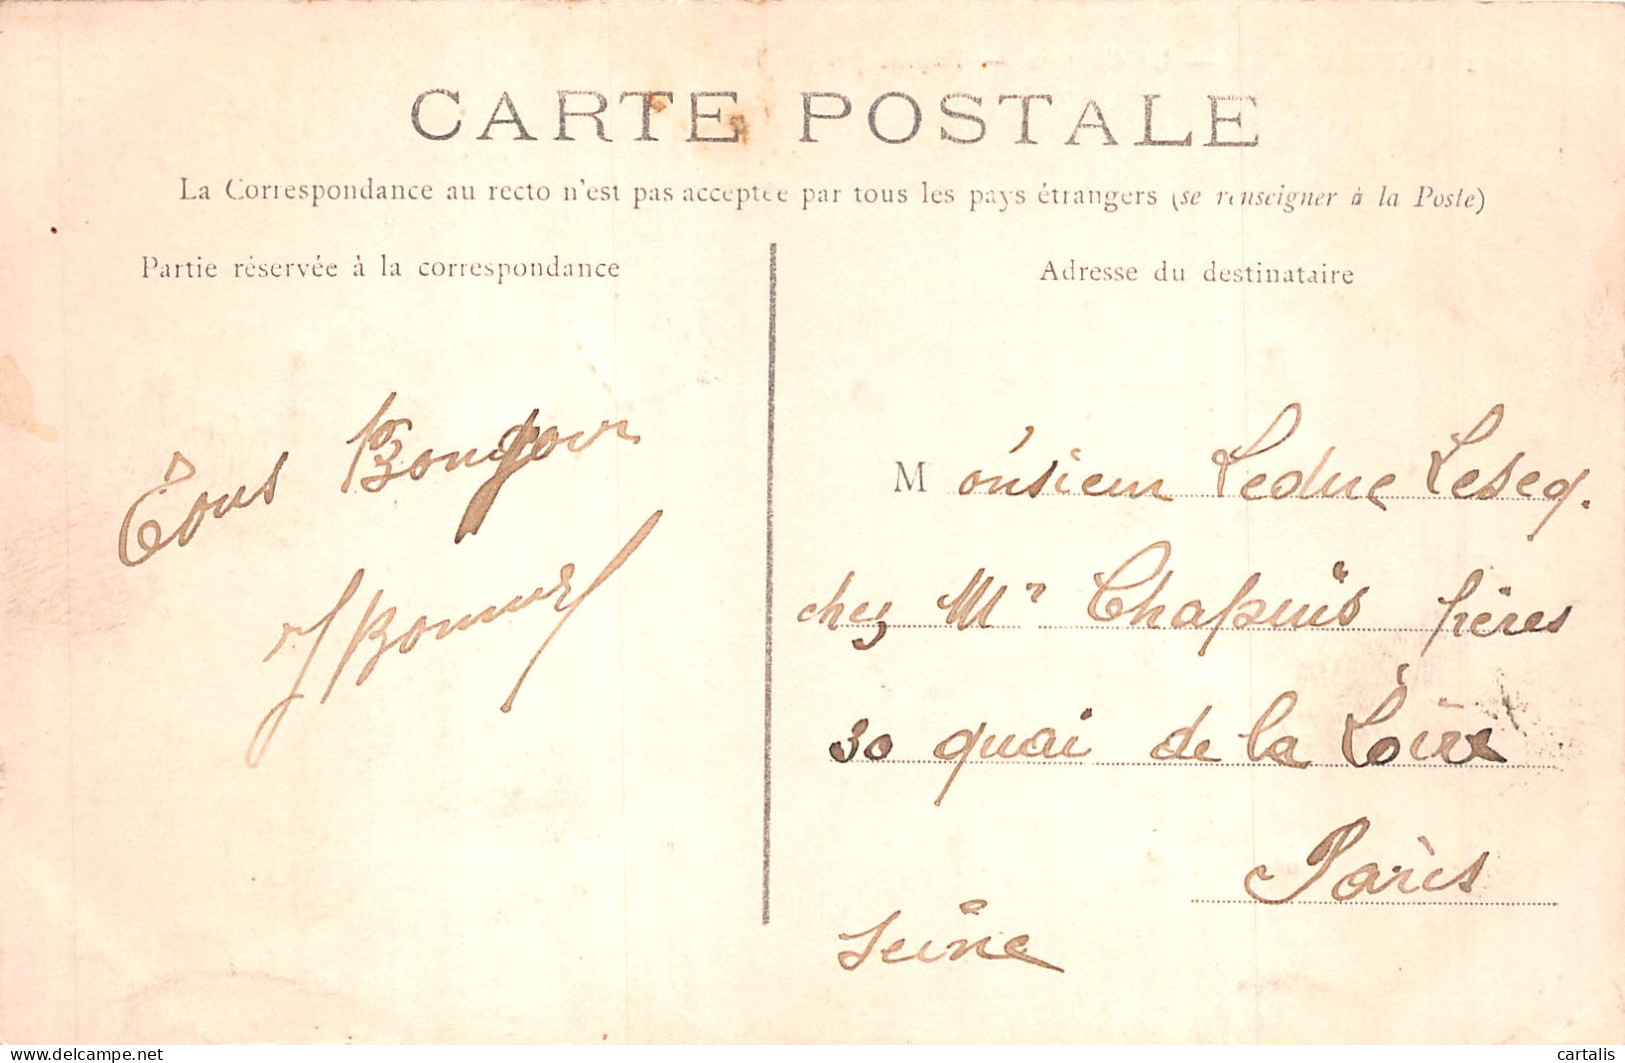 CARTE POSTALE
La Correspondance au recto n'est pas acceptée par tous les pays étrangers (se renseigner à la Poste)
Partie réservée à la correspondance
Tous Bonjour
Adresse du destinataire
Monsieur Leduc Lesecq.
chez Mr Chapuis frères
30 quai de la Loire
Paris
Seine
delcampe.net
cartalis